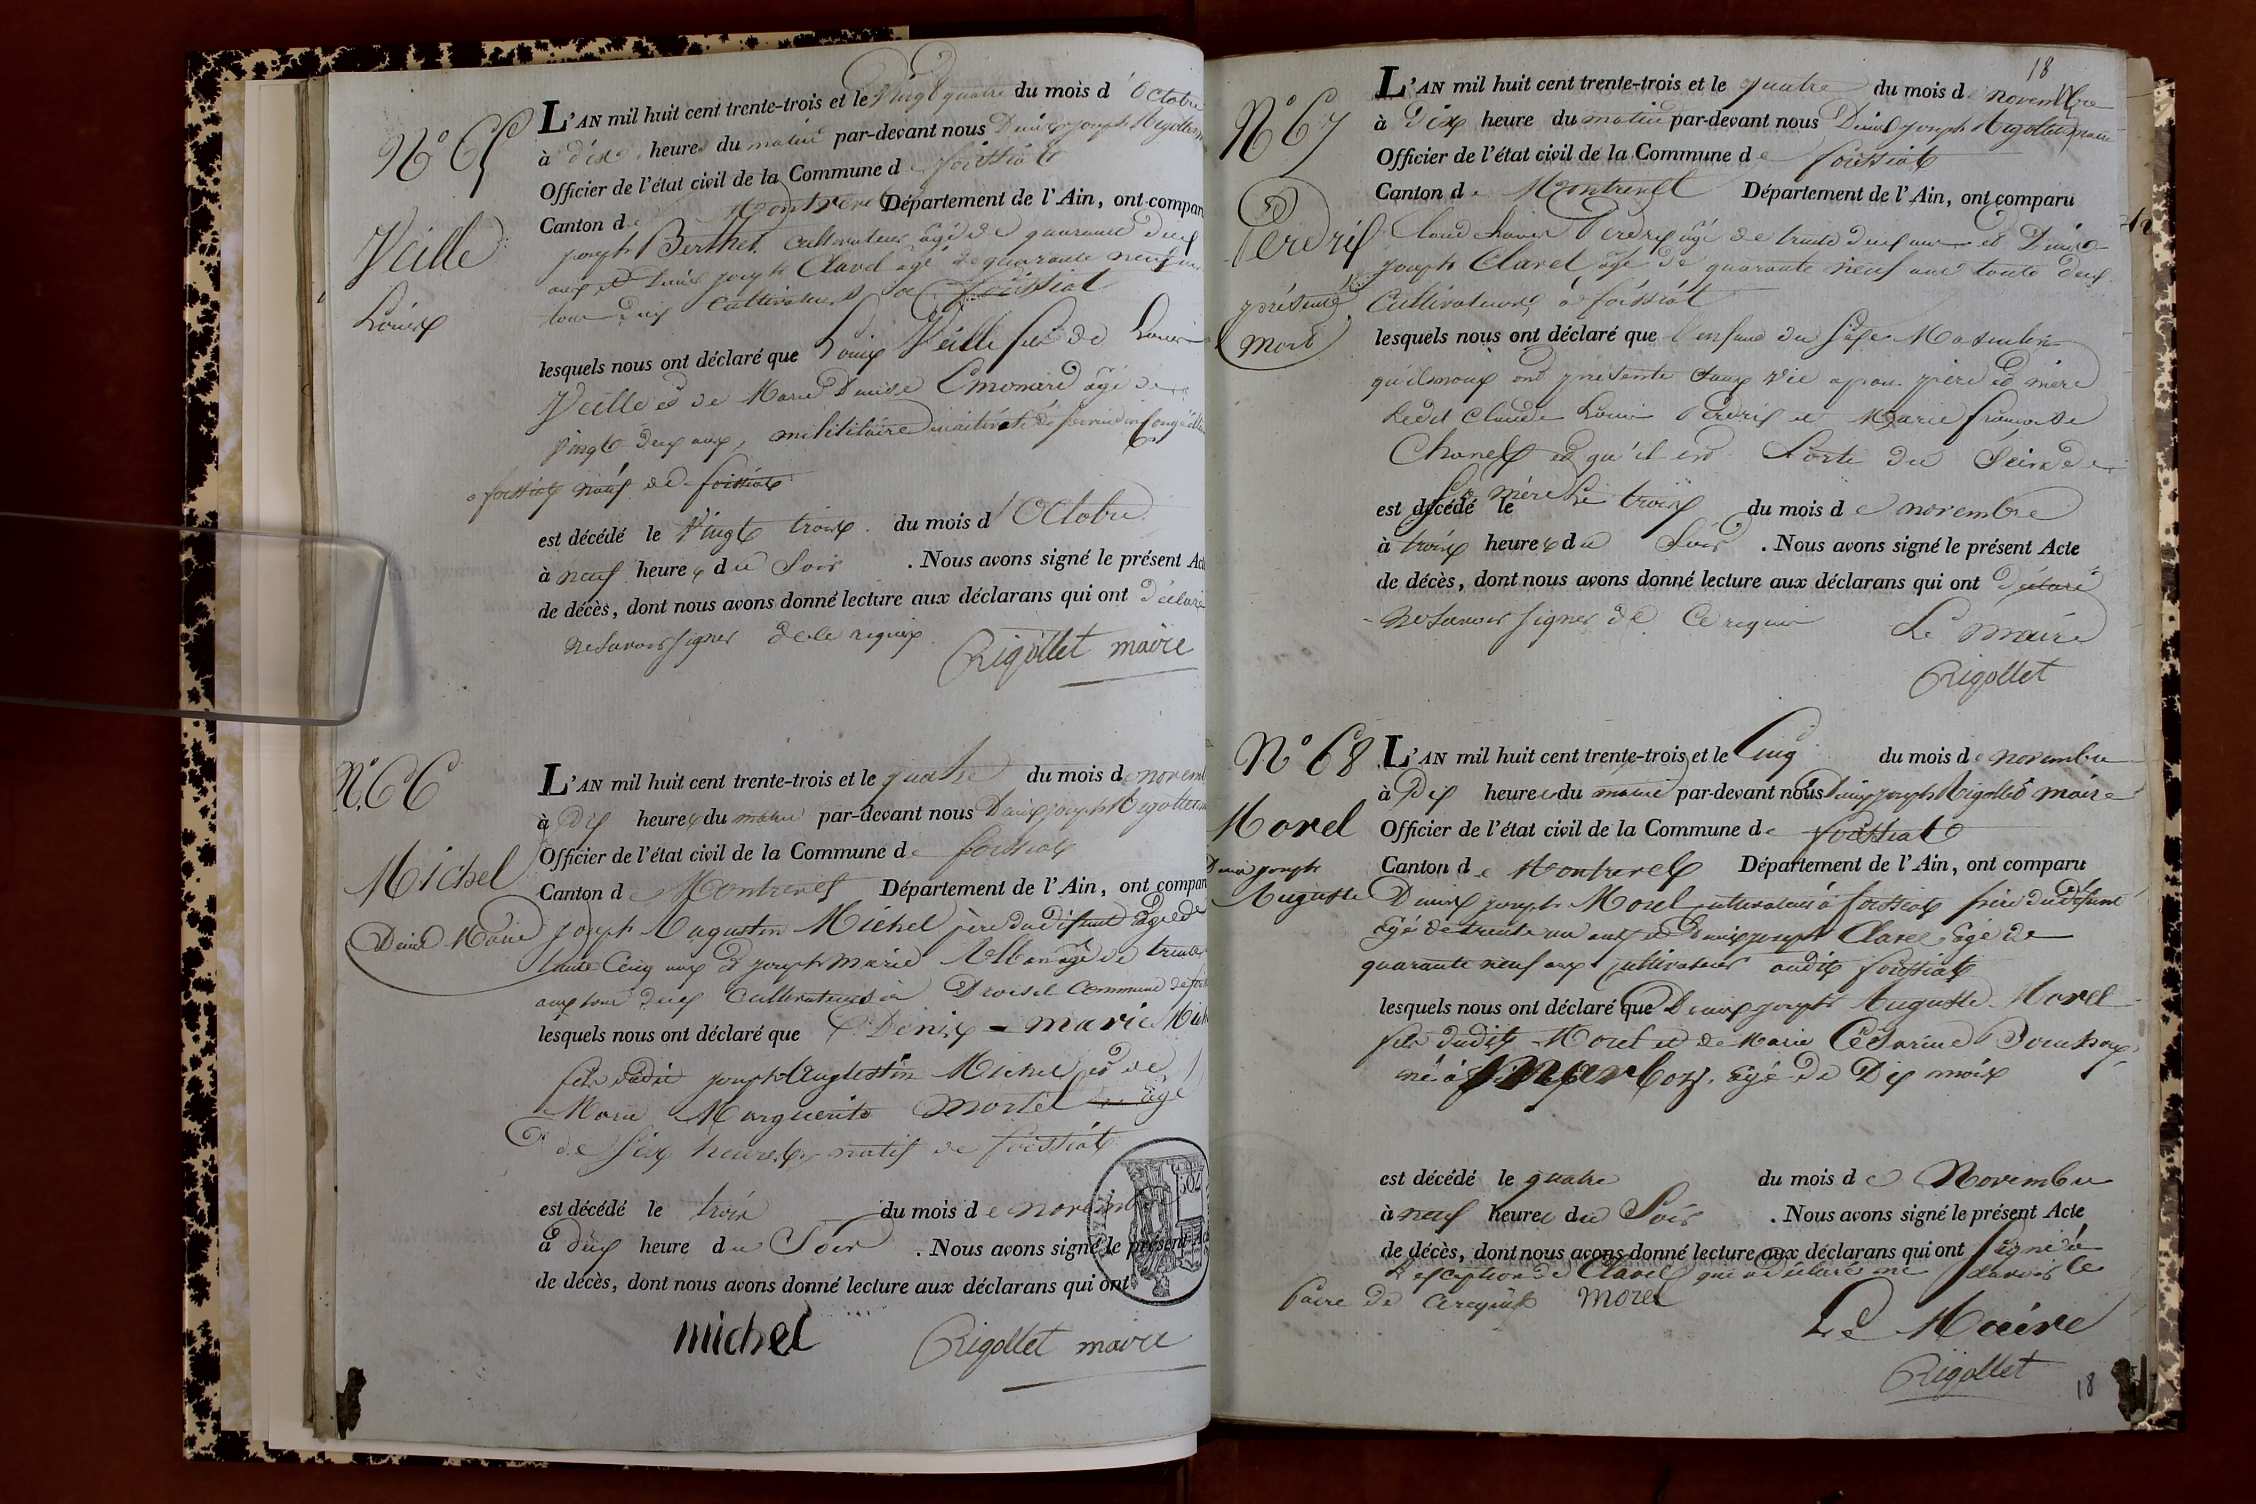 N° 65
Veille
Louis
L'AN mil huit cent trente-trois et le Vingt quatre du mois d'Octobre
à dix heures du matin par-devant nous Denis joseph Rigollet
Officier de l'état civil de la Commune de foissiat
Canton de Montrevel Département de l'Ain, ont comparu
joseph Berthet cultivateur âgé de quarante deux
ans et Denis joseph Clavel agé de quarante neuf ans
tous deux cultivateurs à foissiat
lesquels nous ont déclaré que Louis Veille fils de Louis
Veille et de Marie Denise Emonard âgé de
Vingt deux ans, milititaire en congé
à foissiat natif de foissiat
est décédé le Vingt trois du mois d'Octobre
à neuf heures du Soir . Nous avons signé le présent Acte
de décès, dont nous avons donné lecture aux déclarans qui ont déclaré
ne savoir signer de ce requis
Rigollet maire
N° 66
Michel
Denis Marie
L'AN mil huit cent trente-trois et le quatre du mois de novembre
à dix heures du matin par-devant nous Denis joseph Rigollet
Officier de l'état civil de la Commune de foissiat
Canton de Montrevel Département de l'Ain, ont comparu
joseph Augustin Michel père du défunt âgé de
trente cinq ans et joseph marie âgé de trente
ans tous deux cultivateurs à Commune de
lesquels nous ont déclaré que Denis - marie Michel
fils dudit joseph Augustin Michel et de
Marie Marguerite Mortel âgé
de six heures natif de foissiat
est décédé le trois du mois de novembre
à deux heure du Soir . Nous avons signé le présent Acte
de décès, dont nous avons donné lecture aux déclarans qui ont
michel Rigollet maire
18
N° 67
Perdrix
présenté
mort
L'AN mil huit cent trente-trois et le quatre du mois de novembre
à dix heure du matin par-devant nous Denis joseph Rigollet maire
Officier de l'état civil de la Commune de foissiat
Canton de Montrevel Département de l'Ain, ont comparu
Claude Louis Perdrix âgé de trente deux ans et Denis
joseph Clavel âgé de quarante neuf ans toute deux
Cultivateurs à foissiat
lesquels nous ont déclaré que l'enfant du sexe Masculin
qu'ils nous ont présenté sans vie a pour père et mère
Ledit Claude Louis Perdrix et Marie françoise
Chanel et qu'il est Sorti du Sein de
Sa mère Le
est décédé le trois du mois de novembre
à trois heures du Soir . Nous avons signé le présent Acte
de décès, dont nous avons donné lecture aux déclarans qui ont déclaré
ne savoir signer de ce requis Le maire
Rigollet
N° 68
Morel
Denis joseph
Auguste
L'AN mil huit cent trente-trois et le Cinq du mois de novembre
à Dix heures du matin par-devant nous Denis joseph Rigollet maire
Officier de l'état civil de la Commune de foissiat
Canton de Montrevel Département de l'Ain, ont comparu
Denis joseph Morel cultivateur à foissiat père du défunt
âgé de trente un ans et Denis joseph Clavel âgé de
quarante neuf ans cultivateur audit foissiat
lesquels nous ont déclaré que Denis joseph Auguste Morel
fils dudit Morel et de Marie Césarine
né à Marboz, âgé de Dix mois
est décédé le quatre du mois de Novembre
à neuf heures du Soir . Nous avons signé le présent Acte
de décès, dont nous avons donné lecture aux déclarans qui ont signé à
L'exception de Clavel qui a déclaré ne savoir le
faire de ce requis Morel
Le Maire
Rigollet
18